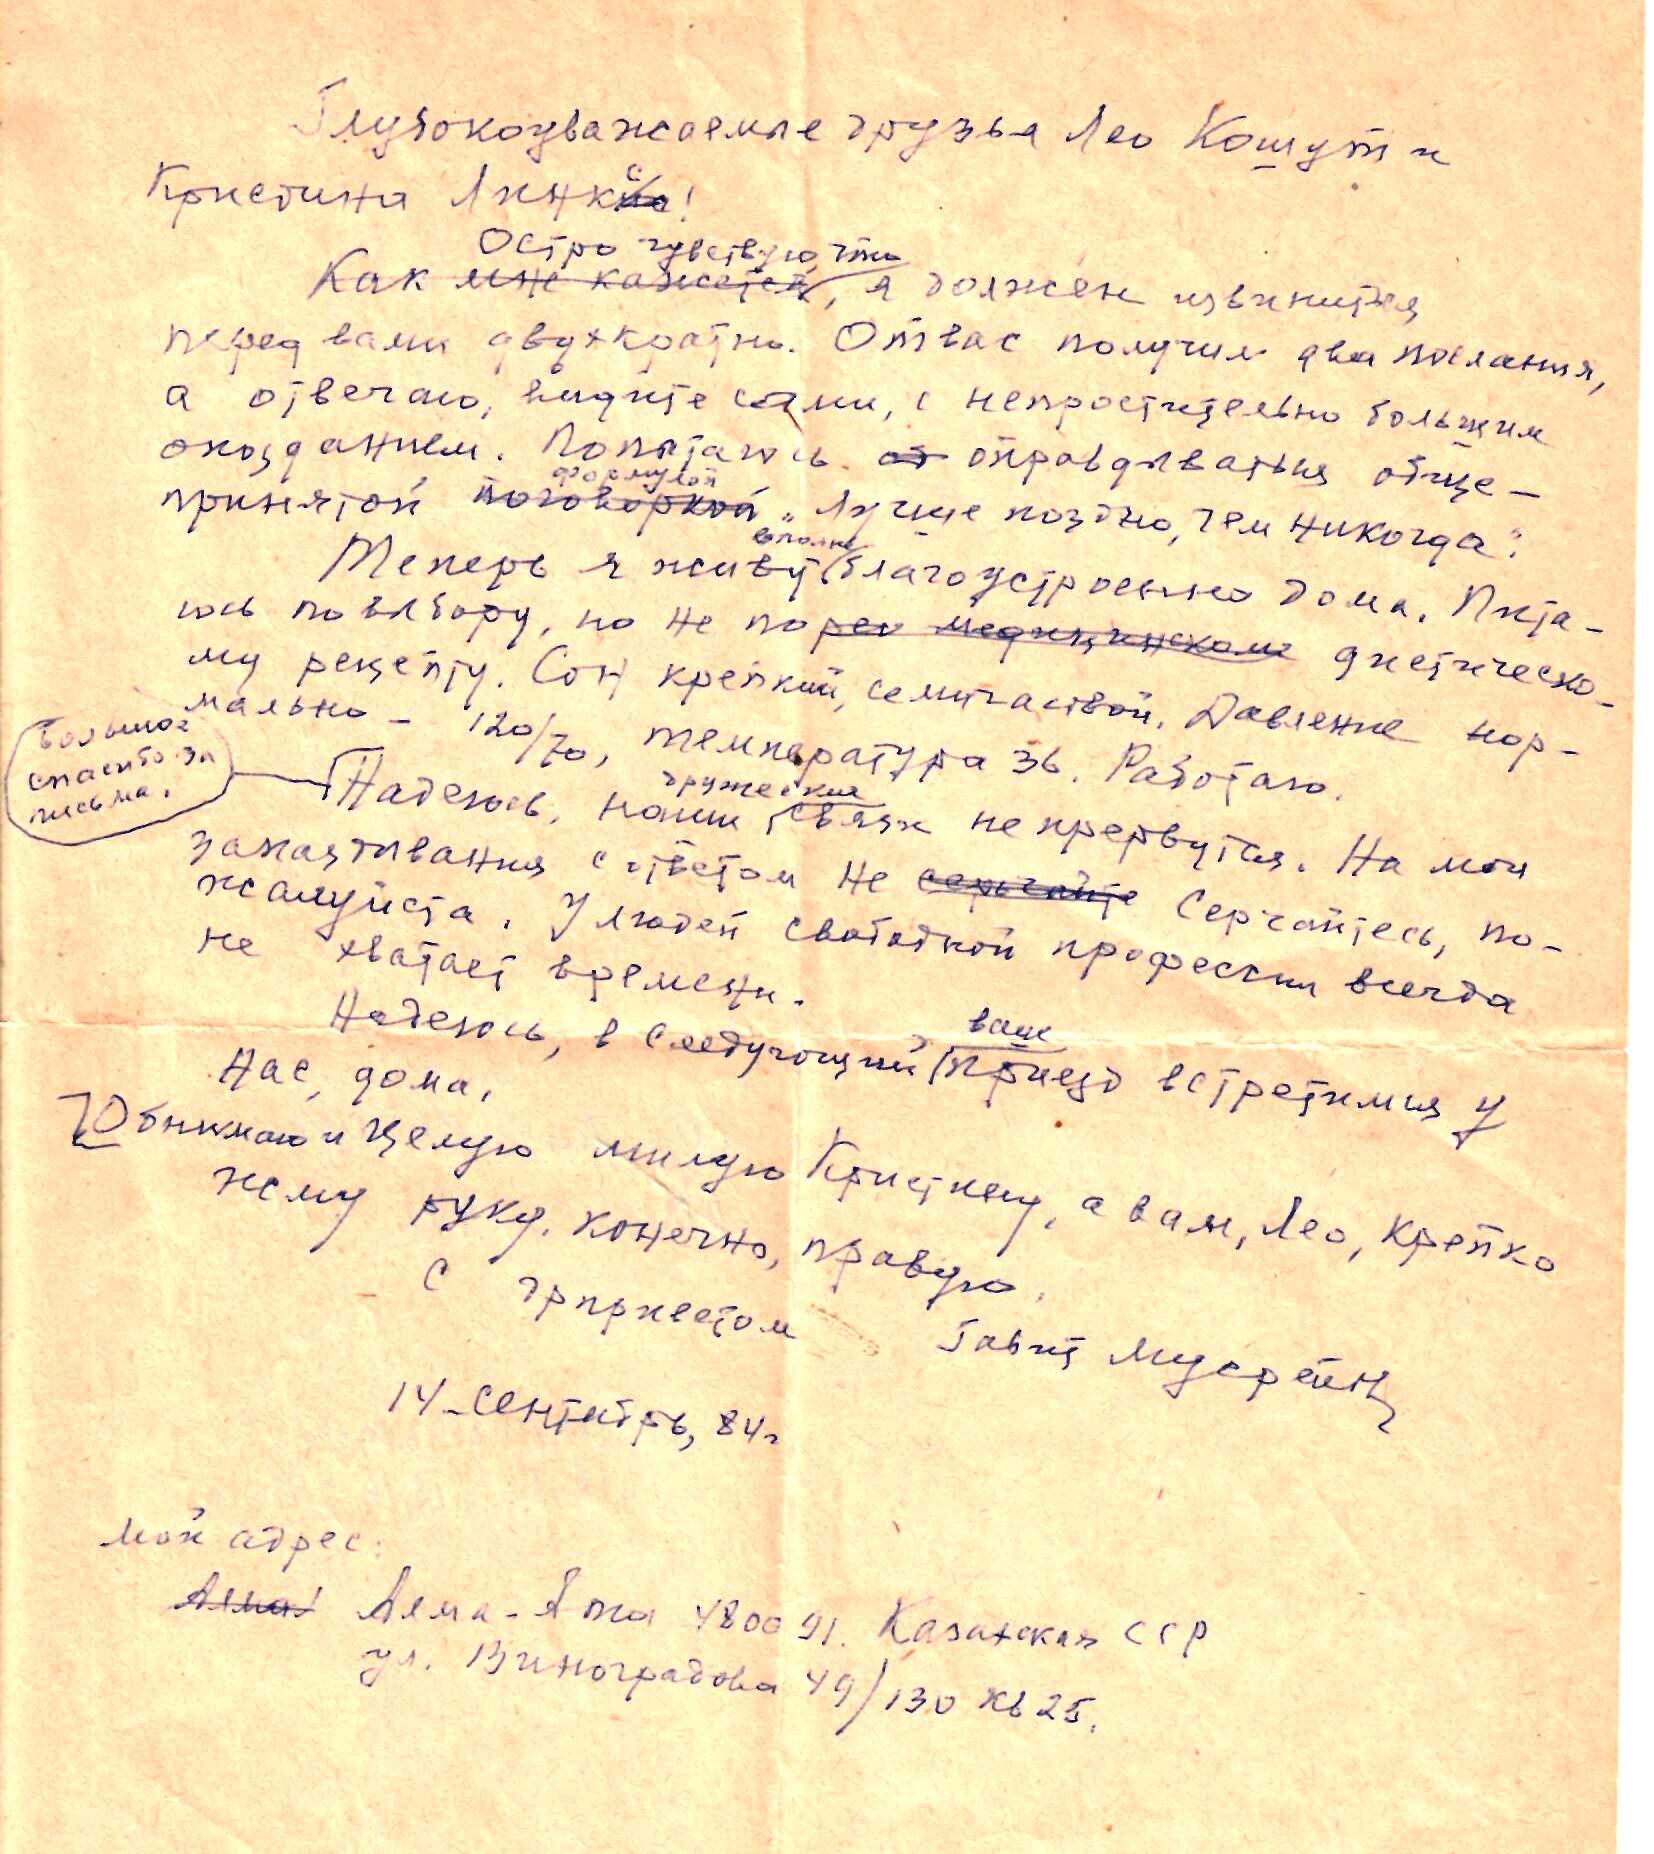 Глубокоуважаемые друзья Лео Кошут и
Кристина Линке!
Остро чувствую, что
Как мне кажется, я должен извинится
перед вами двухкратно. От вас получил два послания,
а отвечаю, видите сами, с непростительно большим
опозданием. Попытаюсь от оправдываться обще-
формулой
принятой поговоркой „Лучше поздно, чем никогда“.
вполне
Теперь я живу благоустроенно дома. Пита-
юсь по выбору, но не по рец медицинскому диетическо-
му рецепту. Сон крепкий, семичасовой. Давление нор-
мально – 120/70, температура 36. Работаю.
Большое
спасибо за
письма.
дружеские
Надеюсь, наши связи не прервутся. На мои
запаздывания с ответом не серчайте серчайтесь, по-
жалуйста. У людей свободной профессии всегда
не хватает времени.
ваш
Надеюсь, в следующий приезд встретимся у
нас, дома.
Обнимаю и целую милую Кристину, а вам, Лео, крепко
жму руку, конечно, правую.
С приветом Габит Мусрепов
14 сентябрь, 84г
Мой адрес:
Алма Алма-Ата 480091. Казахская ССР
ул. Виноградова 49/130 кв 25.